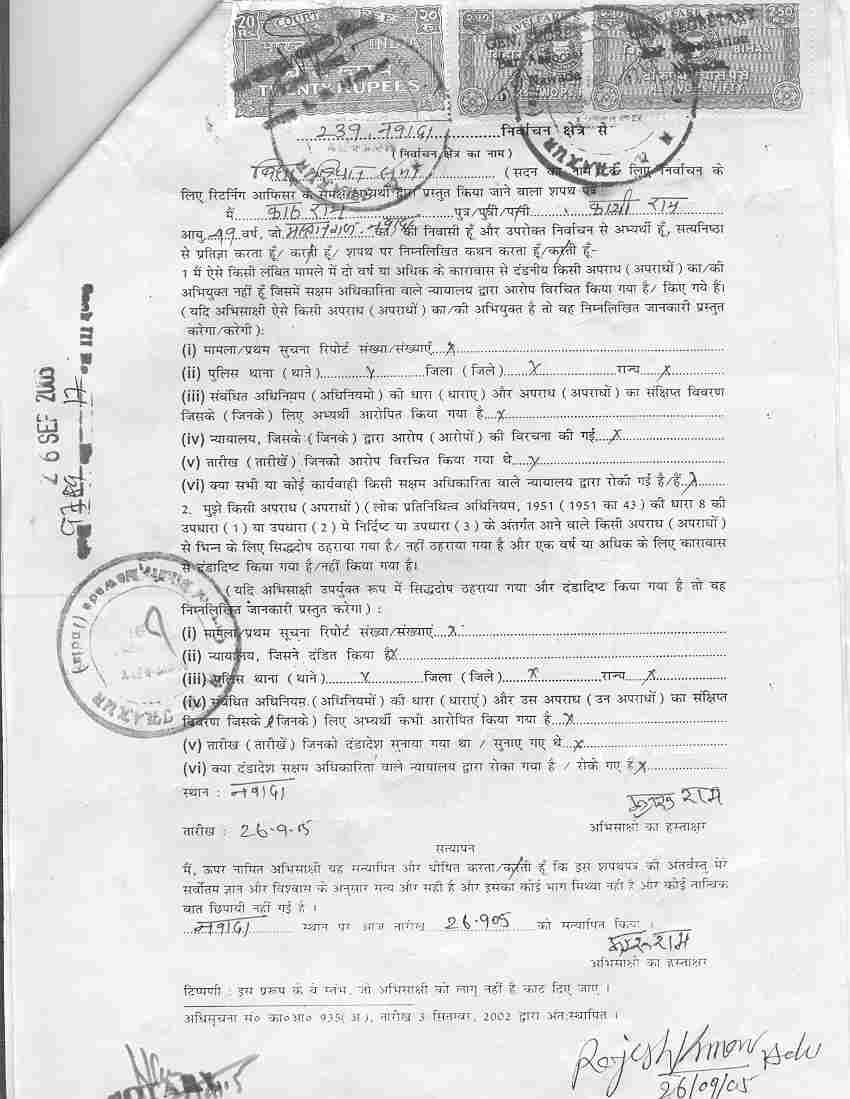 20 COURT 20
भारत INDIA
TWENTY RUPEES
WELFARE
2.50 BIHAR 2.50
Nawada
239 नवादा निर्वाचन क्षेत्र से
( निर्वाचन क्षेत्र का नाम )
बिहार विधान सभा ( सदन का नाम ) के लिए निर्वाचन के
लिए रिटर्निंग आफिसर के समक्ष अभ्यर्थी द्वारा प्रस्तुत किया जाने वाला शपथ पत्र
मैं राम पुत्र/पुत्री/पत्नी काशी राम
आयु 49 वर्ष, जो नवादा का/की निवासी हूँ और उपरोक्त निर्वाचन से अभ्यर्थी हूँ, सत्यनिष्ठा
से प्रतिज्ञा करता हूँ/ करती हूँ/ शपथ पर निम्नलिखित कथन करता हूँ/करती हूँ:-
1 मैं ऐसे किसी लंबित मामले में दो वर्ष या अधिक के कारावास से दंडनीय किसी अपराध ( अपराधों ) का/की
अभियुक्त नहीं हूँ जिसमें सक्षम अधिकारिता वाले न्यायालय द्वारा आरोप विरचित किया गया है/ किए गये हैं।
( यदि अभिसाक्षी ऐसे किसी अपराध ( अपराधों ) का/की अभियुक्त है तो वह निम्नलिखित जानकारी प्रस्तुत
करेगा/करेगी ):
(i) मामला/प्रथम सूचना रिपोर्ट संख्या/संख्याएँ x
(ii) पुलिस थाना ( थाने ) x जिला ( जिले ) x राज्य x
(iii) संबंधित अधिनियम ( अधिनियमो ) की धारा ( धाराए ) और अपराध ( अपराधों ) का संक्षिप्त विवरण
जिसके ( जिनके ) लिए अभ्यर्थी आरोपित किया गया है x
(iv) न्यायालय, जिसके ( जिनके ) द्वारा आरोप ( आरोपों ) की विरचना की गई x
(v) तारीख ( तारीखें ) जिनको आरोप विरचित किया गया थे x
(vi) क्या सभी या कोई कार्यवाही किसी सक्षम अधिकारिता वाले न्यायालय द्वारा रोकी गई है/हैं x
2. मुझे किसी अपराध ( अपराधों ) ( लोक प्रतिनिधित्व अधिनियम, 1951 ( 1951 का 43 ) की धारा 8 की
उपधारा ( 1 ) या उपधारा ( 2 ) मे निर्दिष्ट या उपधारा ( 3 ) के अंतर्गत आने वाले किसी अपराध ( अपराधों )
से भिन्न के लिए सिद्धदोप ठहराया गया है/ नहीं ठहराया गया है और एक वर्ष या अधिक के लिए कारावास
से दंडादिष्ट किया गया है/नहीं किया गया है।
( यदि अभिसाक्षी उपर्युक्त रूप में सिद्धदोप ठहराया गया और दंडादिष्ट किया गया है तो वह
निम्नलिखित जानकारी प्रस्तुत करेगा ) :
(i) मामला/प्रथम सूचना रिपोर्ट संख्या/संख्याएं x
(ii) न्यायालय, जिसने दंडित किया है x
(iii) पुलिस थाना ( थाने ) x जिला ( जिले ) x राज्य x
(iv) संबंधित अधिनियम ( अधिनियमों ) की धारा ( धाराएं ) और उस अपराध ( उन अपराधों ) का संक्षिप्त
विवरण जिसके ( जिनके ) लिए अभ्यर्थी कभी आरोपित किया गया है x
(v) तारीख ( तारीखें ) जिनको दंडादेश सुनाया गया था / सुनाए गए थे x
(vi) क्या दंडादेश सक्षम अधिकारिता वाले न्यायालय द्वारा रोका गया है / रोके गए हैं x
स्थान : नवादा
राम
तारीख : 26-9-05 अभिसाक्षी का हस्ताक्षर
सत्यापन
मैं, ऊपर नामित अभिसाक्षी यह सत्यापित और घोषित करता/करती हूँ कि इस शपथपत्र की अंतर्वस्तु मेरे
सर्वोतम ज्ञान और विश्वास के अनुसार सत्य और सही है और इसका कोई भाग मिथ्या नही है और कोई तान्विक
बात छिपायी नहीं गई है ।
नवादा स्थान पर आज तारीख 26-9-05 को सत्यापित किया ।
राम
अभिसाक्षी का हस्ताक्षर
टिप्पणी : इस प्ररूप के वे स्तंभ, जो अभिसाक्षी को लागु नहीं है काट दिए जाए ।
अधिसूचना सं० का०आ० 935( अ ), तारीख 3 सितम्बर, 2002 द्वारा अंत:स्थापित ।
Rajesh Kumar Adv
26/09/05
NOTARY
26 SEP 2005
THAKUR
Nawada (India)